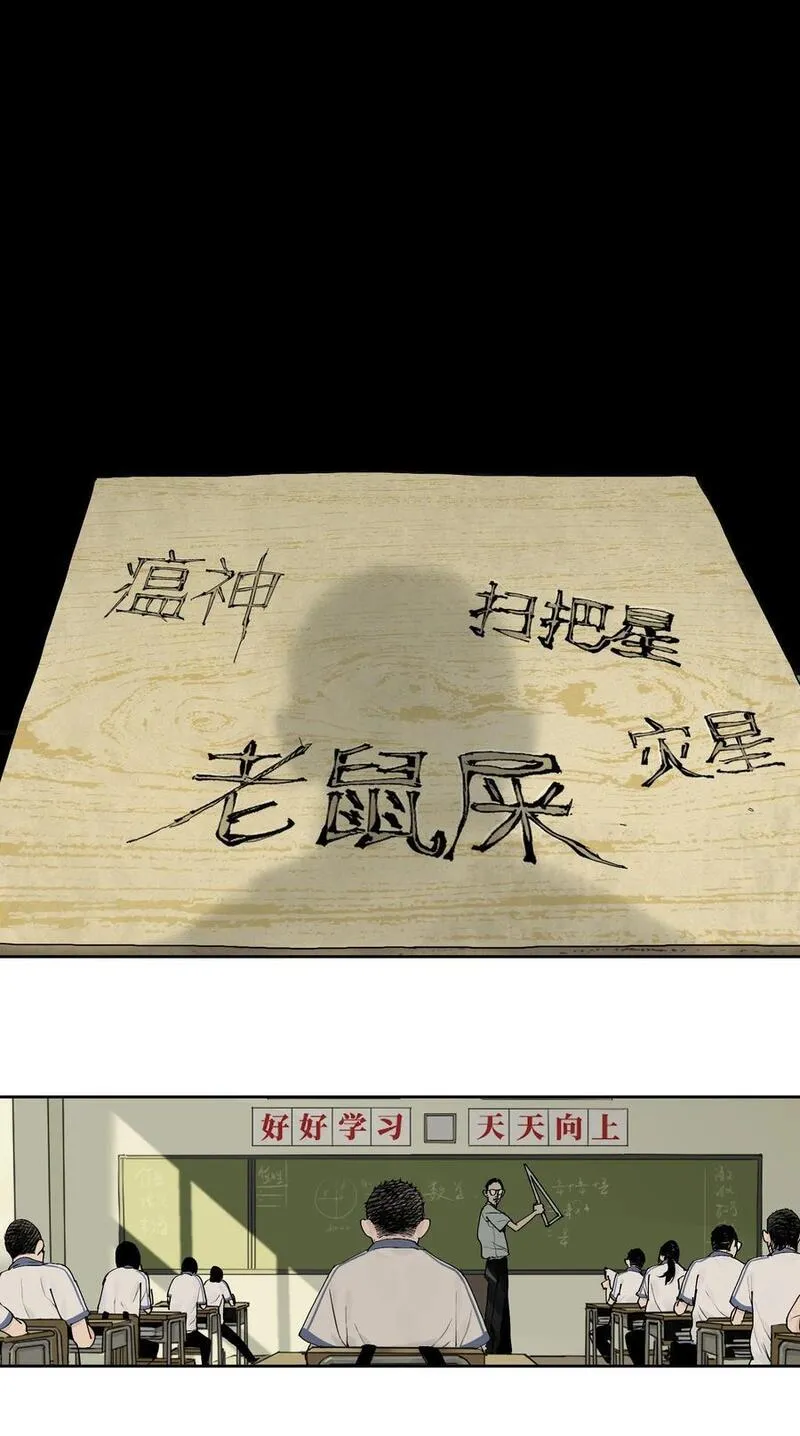 瘟神
扫把星
灾星
老鼠屎
好好学习 天天向上
数学